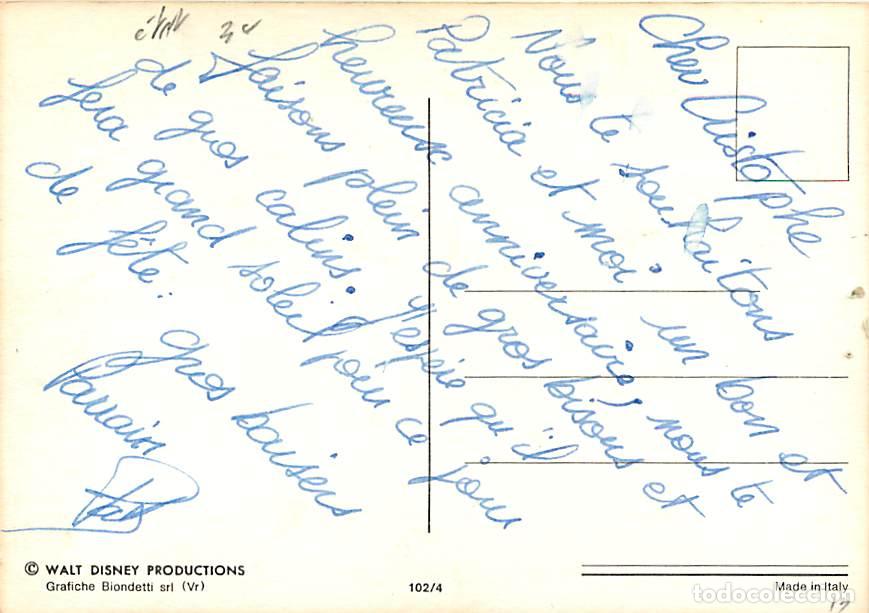 Cher Cristophe
Nous te souhaitons
Patricia et moi un bon et
heureux anniversaire, nous te
faisons plein de gros bisous et
de gros calins. J'espère qu'il
fera grand soleil pour ce jour
de fête.
gros baisers
Parrain
Pat
© WALT DISNEY PRODUCTIONS
Grafiche Biondetti srl (Vr)
102/4
Made in Italy
todocoleccion